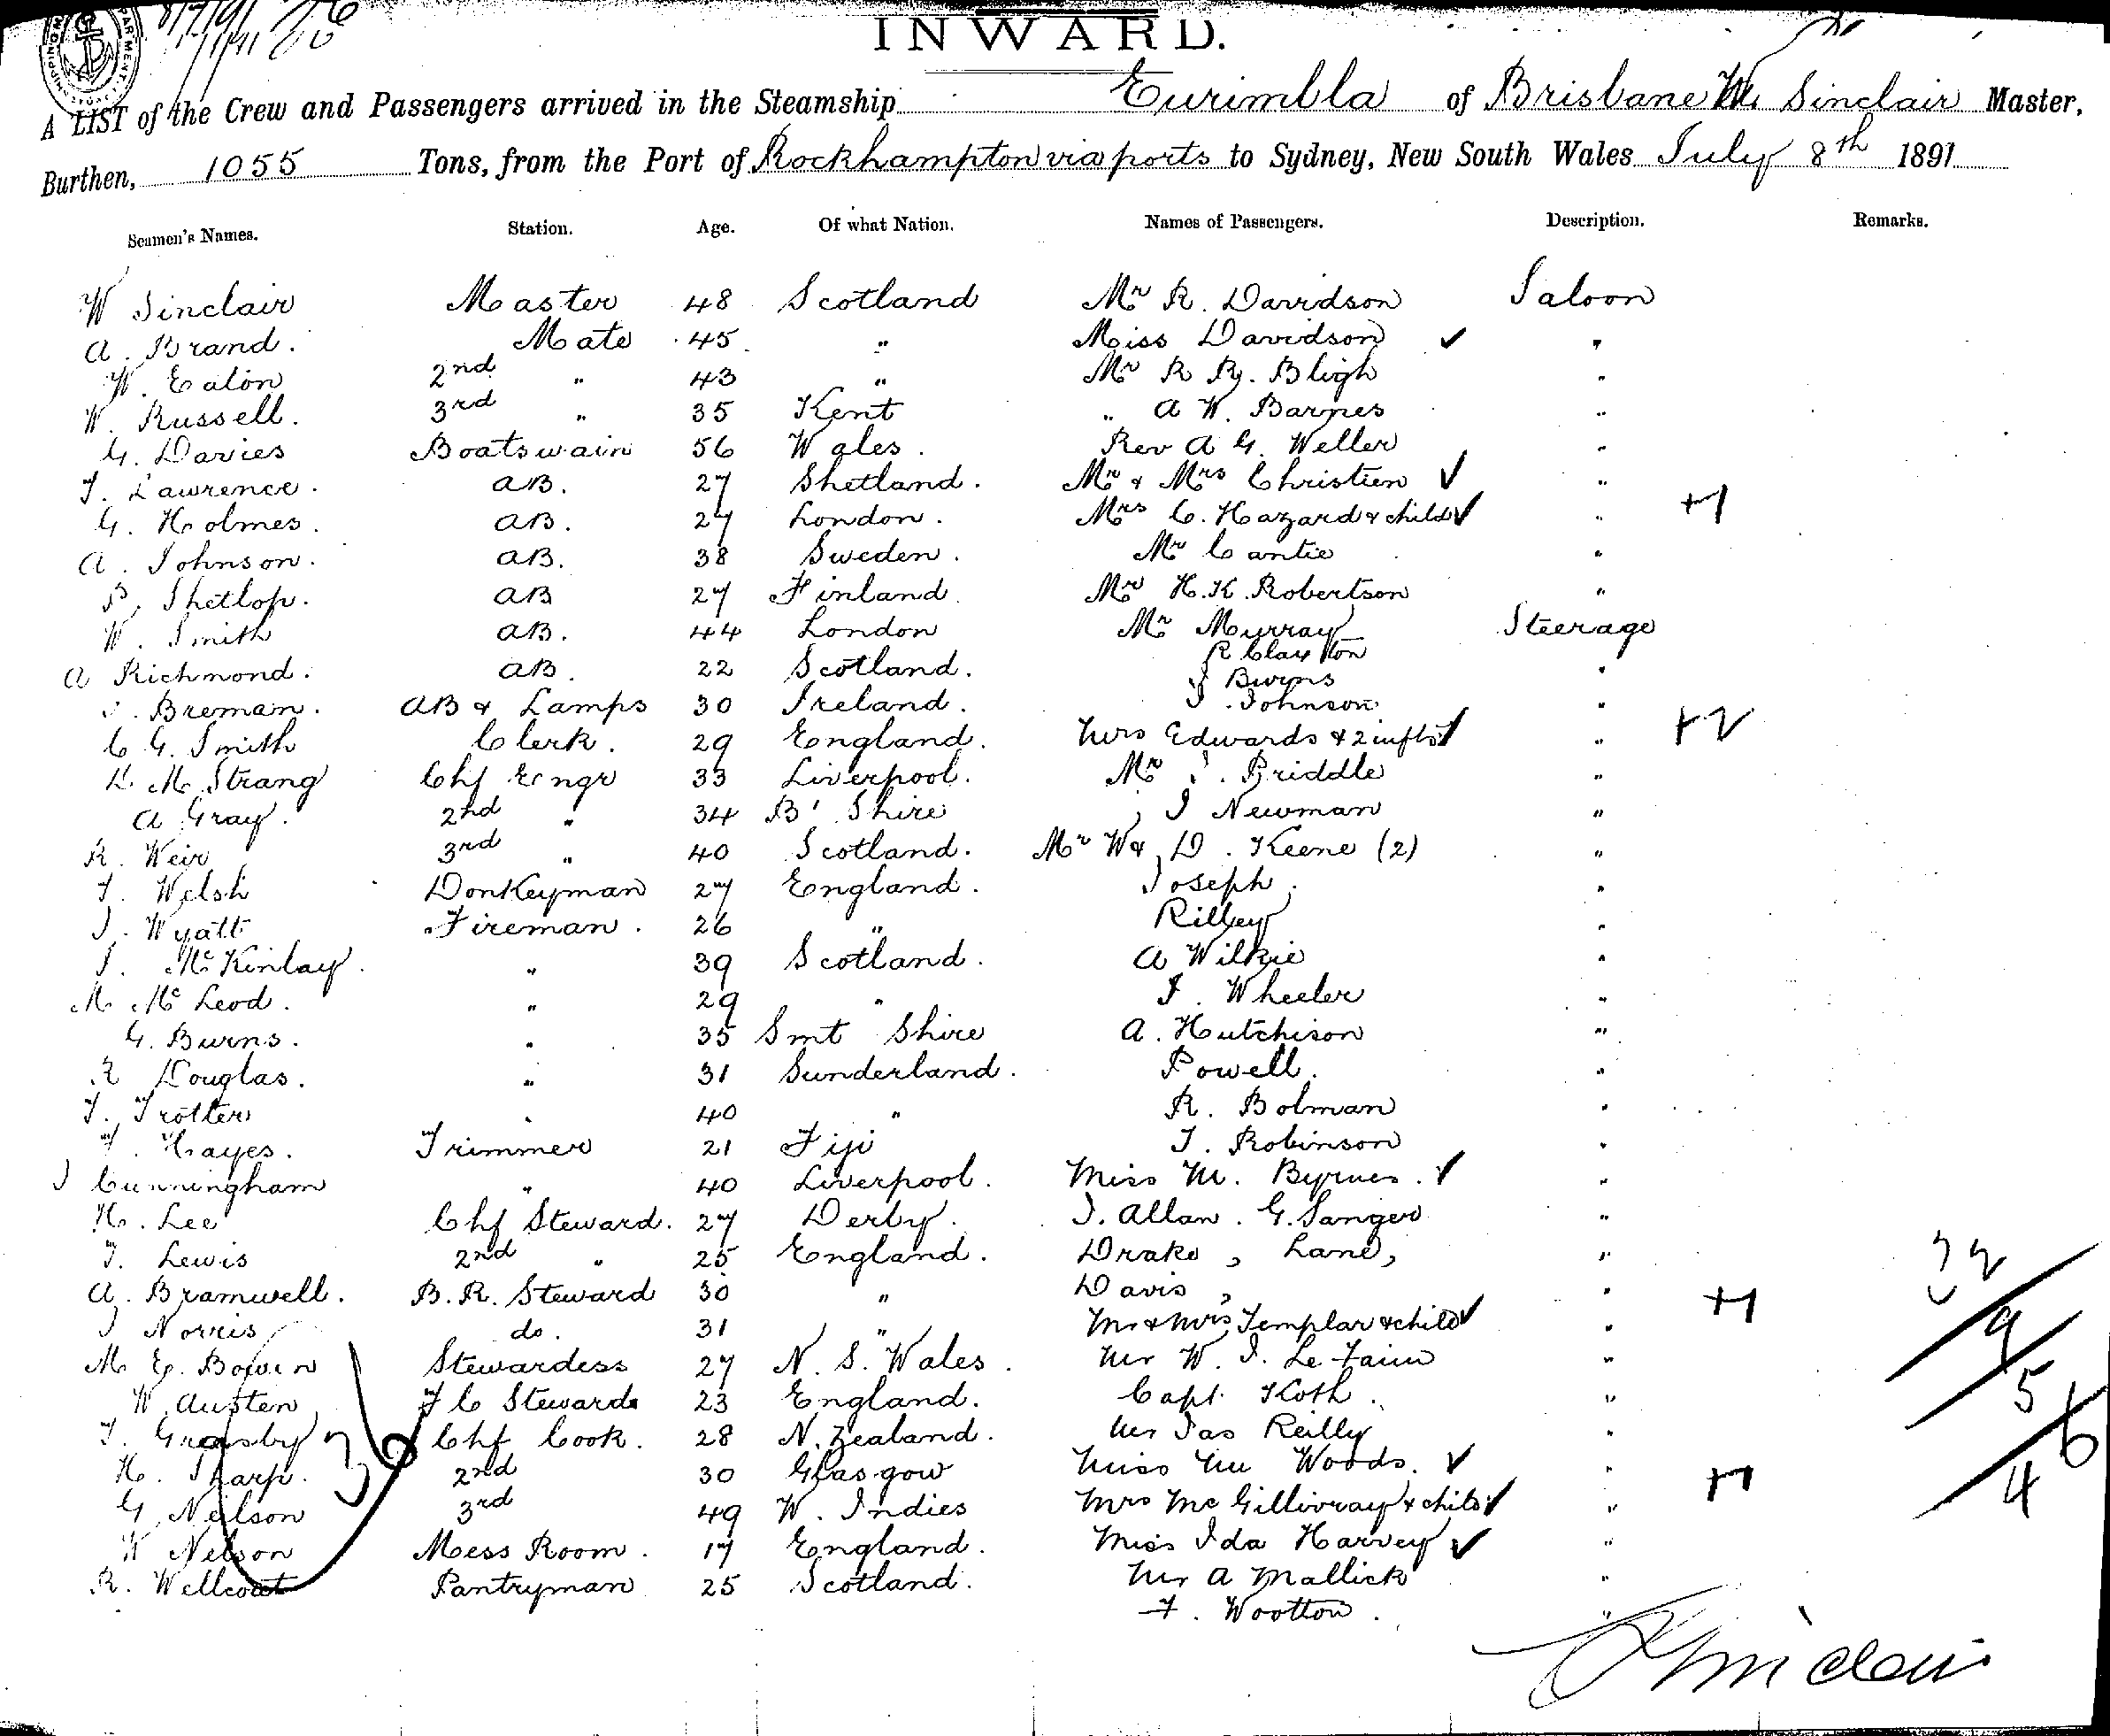 INWARD.
A LIST of the Crew and Passengers arrived in the Steamship Eurimbla of Brisbane W Sinclair Master,
Burthen, 1055 Tons, from the Port of Rockhampton via ports to Sydney, New South Wales July 8th 1891
Seamen's Names. Station. Age. Of what Nation. Names of Passengers. Description. Remarks.
W Sinclair Master 48 Scotland Mr R. Davidson Saloon
A. Brand. Mate 45 " Miss Davidson ✓ "
W. Eaton 2nd " 43 " Mr R R. Bligh "
W. Russell. 3rd " 35 Kent " A W. Barnes "
G. Davies Boatswain 56 Wales. Rev A G. Weller "
T. Lawrence. AB. 27 Shetland. Mr & Mrs Christien ✓ "
G. Holmes. AB. 27 London. Mrs C. Hazard & child ✓ " +1
A. Johnson. AB. 38 Sweden. Mr Cantie "
P. Shetlop. AB 27 Finland. Mr H.K. Robertson "
W. Smith AB. 44 London Mr Murray Steerage
R Clayton
A Richmond. AB. 22 Scotland. J Burns "
J. Breman. AB & Lamps 30 Ireland. J. Johnson "
C G. Smith Clerk. 29 England. Mrs Edwards & 2 infts ✓ " +2
D. M. Strang Chf Engr 33 Liverpool. Mr J. Briddle "
A Gray. 2nd " 34 B' Shire J Newman "
R. Weir 3rd " 40 Scotland. Mr W & D. Keene (2) "
T. Welsh Donkeyman 27 England. Joseph. "
J. Wyatt Fireman. 26 " Rilley "
J. McKinlay. " 39 Scotland. A Wilkie "
M McLeod. " 29 " J. Wheeler "
G. Burns. " 35 Smt Shire A. Hutchison "
R Douglas. " 31 Sunderland. Powell. "
T. Trotter " 40 " R. Bolman "
T. Hayes. Trimmer 21 Fiji T. Robinson "
J Cunningham " 40 Liverpool. Miss M. Byrnes. ✓ "
H. Lee Chf Steward. 27 Derby. J. Allan. G. Sanger "
T. Lewis 2nd " 25 England. Drake, Lane, "
A. Bramwell. B.R. Steward 30 " Davis, "
J Norris do. 31 " Mr & Mrs Templar & child ✓ " +1
M E. Bowen Stewardess 27 N. S. Wales. Mr W. J. Le "
W. Austen F C Steward 23 England. Capt. Koth. "
T. Grasby Chf Cook. 28 N. Zealand. Mr Jas Reilly "
H. Sharp. 2nd 30 Glasgow Miss M Woods. ✓ "
G Neilson 3rd 49 W. Indies Mrs McGillivray & child ✓ " +1
W Nelson Mess Room. 17 England. Miss Ida Harvey ✓ "
R. Wellcoat Pantryman 25 Scotland. Mr A Mallick "
F. Wootton. "
36
32
9
5
56
4
Sinclair